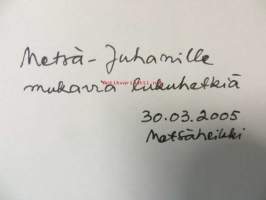 Metsä-Juhanille
mukavia lukuhetkiä
30.03.2005
Metsäheikki